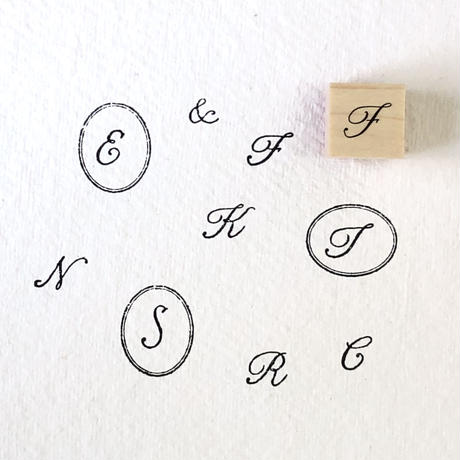 &
E
F
F
K
T
N
S
R
C